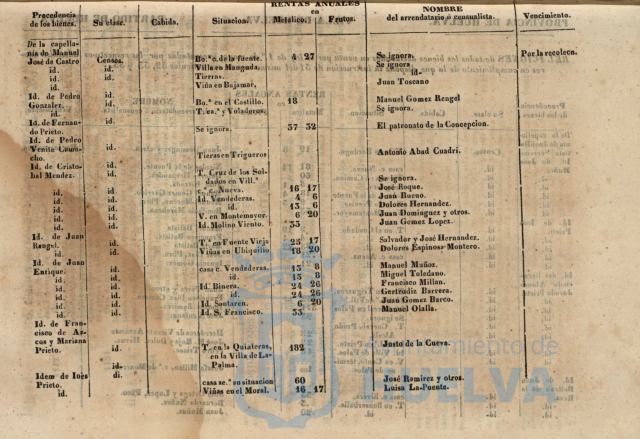 RENTAS ANUALES
en
Procedencia de los bienes. Su clase. Cabida. Situacion. Metálico. Frutos. NOMBRE del arrendatario ó censualista. Vencimiento.
De la capellanía de Manuel
José de Castro Censos. Bo.ª c. de la fuente. 4 27 Se ignora. Por la recolecn.
id. id. Villa en Manguda. Se ignora.
id. id. Tierras. id-
id. id. Viña en Bajamar, Juan Toscano
Id. de Pedro
Gonzalez. id. Bo.ª en el Castillo. 18 Manuel Gomez Rengel
id. T. en.ª y Voladeros. Se ignora.
Id. de Fernando
Prieto. id. Se ignora. 37 32 El patronato de la Concepcion.
Id. de Pedro
Venite Camacho.
id. Tieras en Trigueros Antonio Abad Cuadri.
Id. de Cristobal
Mendez. id. T. Cruz de los Soldados
en Vill.ª Se ignora.
id. id. c. Nueva. 16 17 José Roque.
id. id. Id. Vendederas. 4 6 Juan Bueno.
id. id. id. 13 6 Dolores Hernandez.
id. id. V. en Montemayor. 6 20 Juan Dominguez y otros.
id. id. Id. Molino Viento. 33 Juan Gomez Lopez.
Id. de Juan
Rengel. id. T.ª en Fuente Vieja 23 17 Salvador y José Hernandez.
id. id. Viñas en Ubiquillo 18 20 Dolores Espinosa Montero.
Id. de Juan
Enrique. id. casa c. Vendederas. 13 8 Manuel Muñoz.
id. id. id. 13 8 Miguel Toledano.
id. id. Id. Binera. 24 26 Francisco Millan.
id. id. id. 24 26 Gertrudiz Barrera.
id. id. Id. Santaren. 6 20 Juan Gomez Barco.
id. id. Id. S. Francisco. 33 Manuel Olalla.
Id. de Francisco
de Arcos
y Mariana
Prieto. id. T. en la Quiateras, 182 Justo de la Cueva.
en la Villa de La-
id- Palma.
Idem de Inés di.
Prieto. casa se.ª en situacion 60 José Ramirez y otros.
id. Viñas en el Moral. 16 17 Luisa La-Puente.
Ayuntamiento de
HUELVA